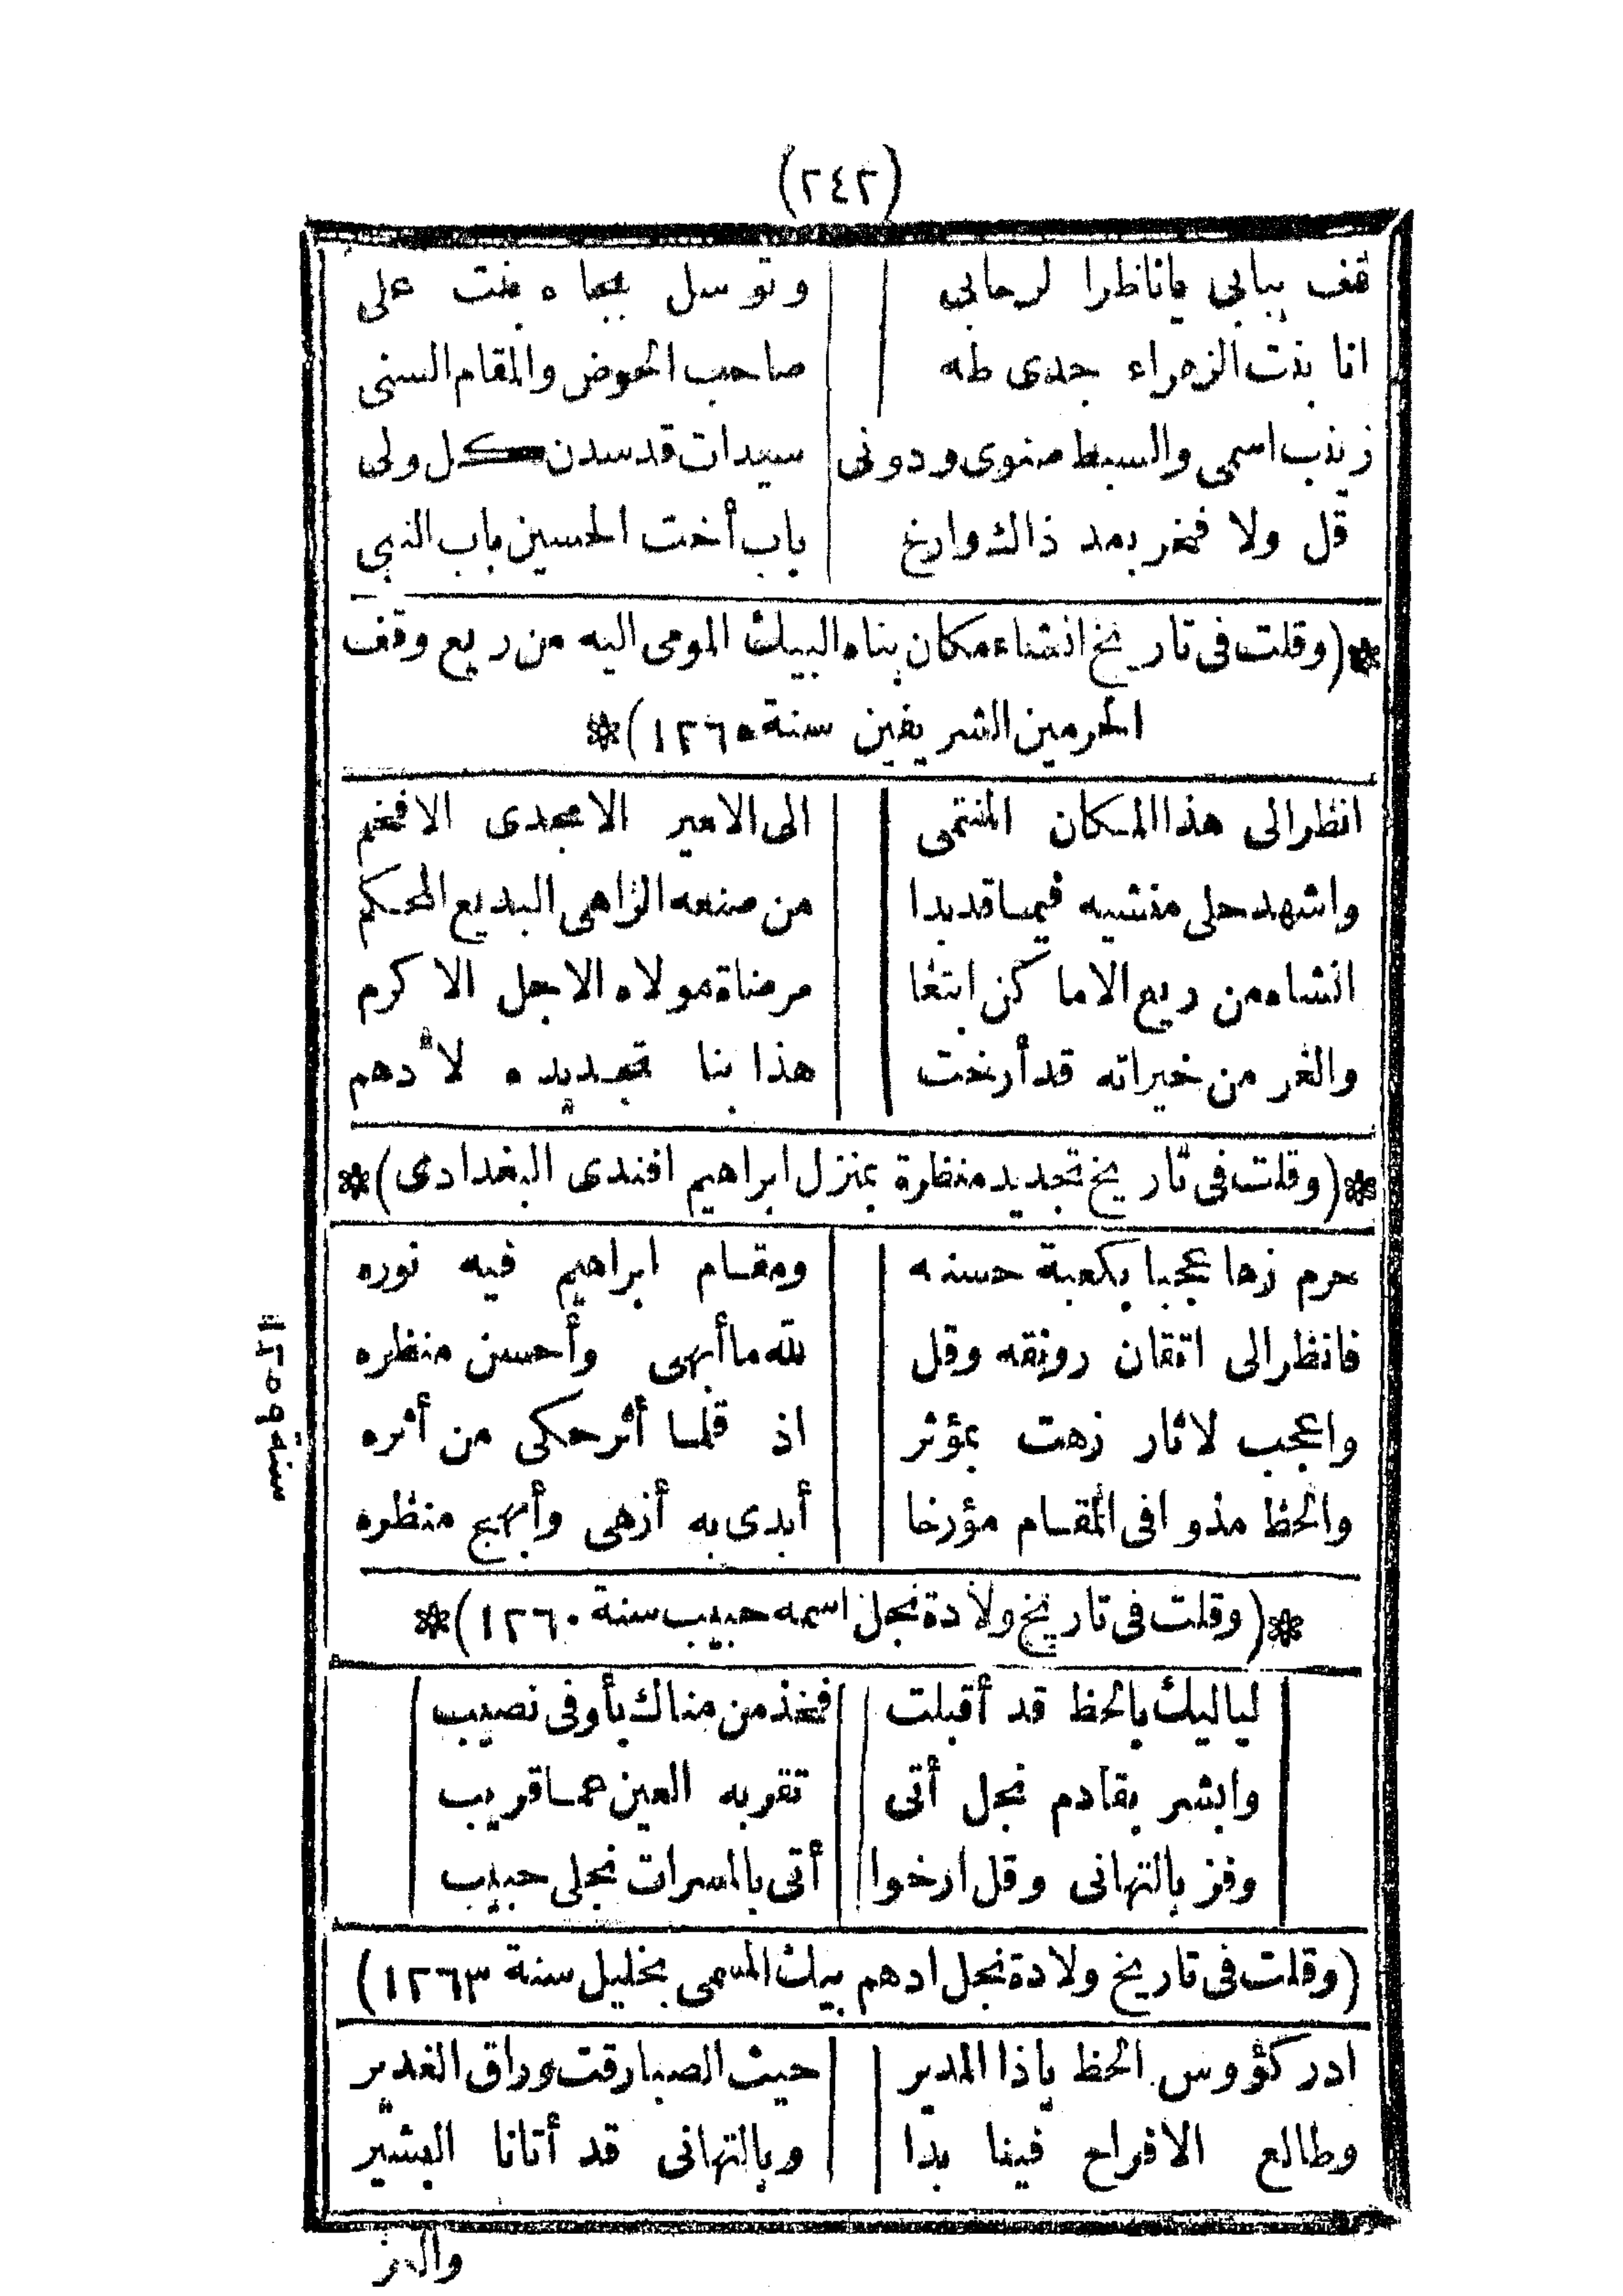 (٢٤٢)
قف ببابى يا ناظرا لرحابى وتوسل بجاه بنت على
انا بنت الزهراء جدى طه صاحب الحوض والمقام السنى
زينب اسمى والسبط صنوى ودونى سيدات قد سدن كل ولى
قل ولا فخر بعد ذاك وارخ باب أخت الحسين باب النبى
*(وقلت فى تاريخ انشاء مكان بناه البيك المومى اليه من ريع وقف
الحرمين الشريفين سنة ١٢٦٠)*
انظر الى هذا المكان المنتمى الى الامير الامجدى الافخم
واشهد حلى منشيه فيما قد بدا من صنعه الزاهى البديع المحكم
انشاه من ريع الاماكن ابتغا مرضاة مولاه الاجل الاكرم
والغر من خيراته قد أرخت هذا بنا تجديده لأدهم
*(وقلت فى تاريخ تجديد منظرة بمنزل ابراهيم افندى البغدادى)*
حرم زها عجبا بكعبة حسنه ومقام ابراهيم فيه نوره
فانظر الى اتقان رونقه وقل لله ما أبهى وأحسن منظره
واعجب لاثار زهت بمؤثر اذ قلما أثر حكى من أثره
والحظ مذ وافى المقام مؤرخا أبدى به أزهى وأبهج منظره
سنة ١٢٥٩
*(وقلت فى تاريخ ولادة نجل اسمه حبيب سنة ١٢٦٠)*
لياليك بالحظ قد أقبلت فخذ من مناك بأوفى نصيب
وابشر بقادم نجل أتى تقر به العين عما قريب
وفز بالتهانى وقل ارخوا أتى بالمسرات نجلى حبيب
(وقلت فى تاريخ ولادة نجل ادهم بيك المسمى بخليل سنة ١٢٦٣)
ادر كؤوس الحظ ياذا المدير حيث الصبا رقت وراق الغدير
وطالع الافراح فينا بدا وبالتهانى قد أتانا البشير